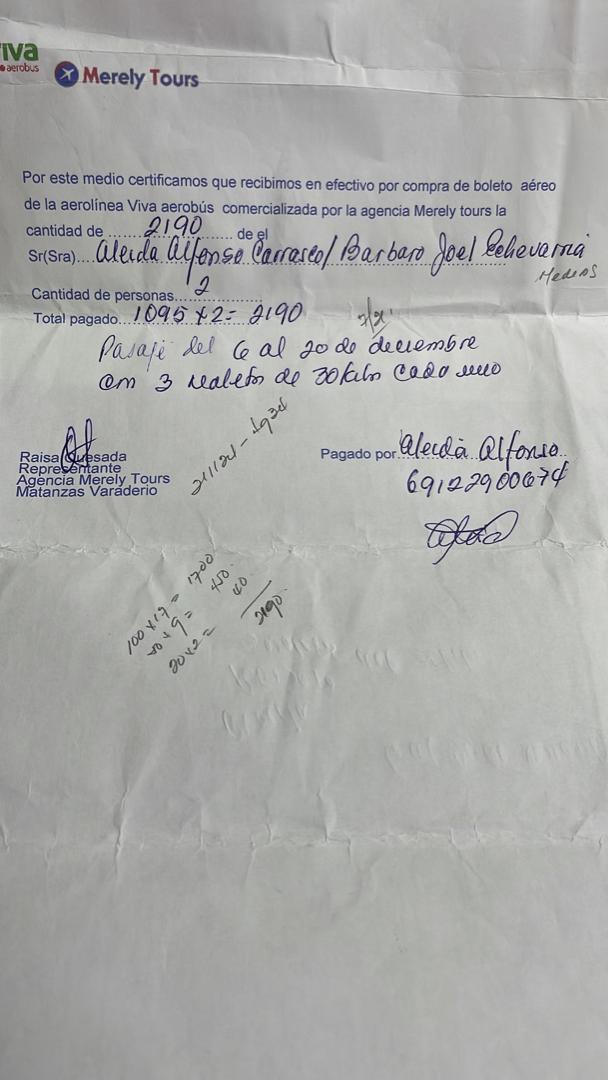 iva
aerobus
Merely Tours
Por este medio certificamos que recibimos en efectivo por compra de boleto aéreo
de la aerolínea Viva aerobús comercializada por la agencia Merely tours la
cantidad de ......2190...... de el
Sr(Sra).... Aleida Alfonso Carrasco/ Barbaro Joel Echevarria
Mederos
Cantidad de personas....2............
Total pagado...1095 x 2 = 2190
Pasaje del 6 al 20 de diciembre
con 3 maletas de 30 kilos cada uno
211121 - 1934
Raisa Quesada
Representante
Agencia Merely Tours
Matanzas Varadero
Pagado por Aleida Alfonso
69122900674
100 x 17 = 1700
50 x 9 = 450
20 x 2 = 40
2190